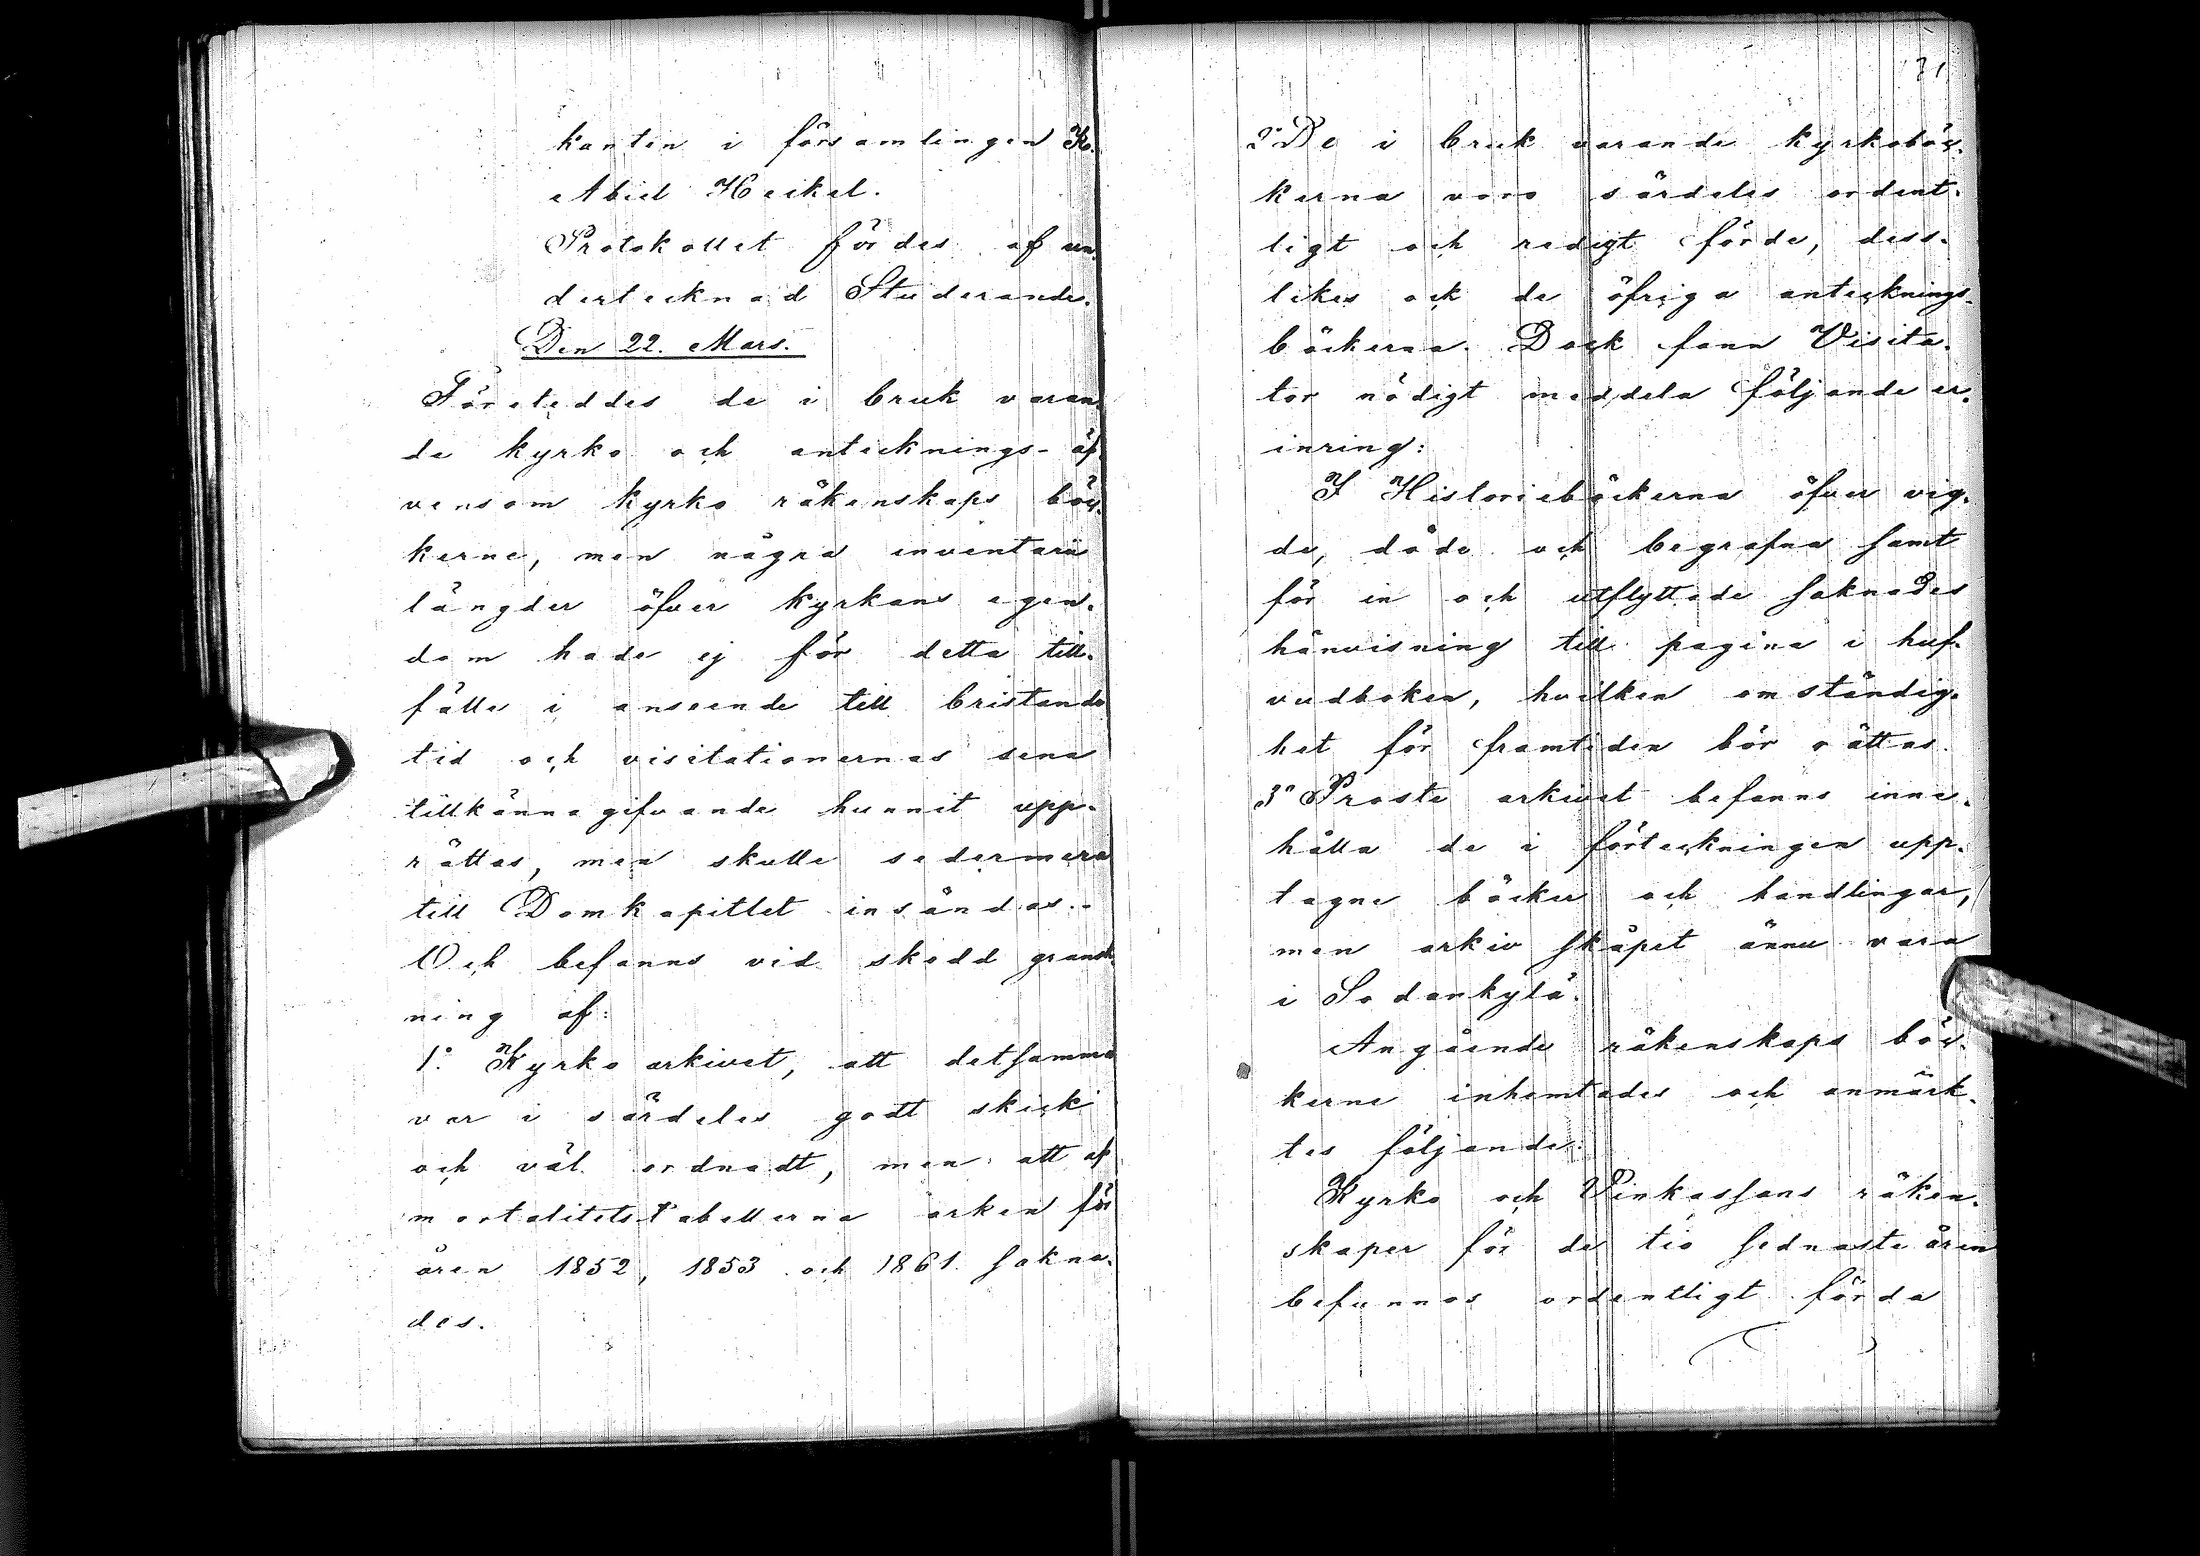 kanten i församlingen K.
Abiel Heikel.
Protokollet fördes af un-
dertecknad Studerande.
Den 22. Mars.
Företeddes de i bruk varan-
de kyrko och antecknings- äf
vensom kyrko räkenskaps böc-
kerne, men några inventarii
längder öfver kyrkans egen-
dom hade ej för detta till-
fälle i anseende till bristande
tid och visitationernas sena
tillkännagifvande hunnit upp-
rättas, men skulle sedermera
till Domkapitlet insändas.-
Och befanns vid skedd gransk-
ning af:
1° Kyrko arkivet, att detsamma
var i särdeles godt skick
och väl ordnadt, men att af
mortalitets tabellerna arken för
åren 1852, 1853 och 1861 sakna-
des.
31
2° De i bruk varande kyrkoböc-
kerna voro särdeles ordent-
ligt och redigt förde, dess-
likes ock de öfriga antecknings-
böckerna. Dock fann Visita-
tor nödigt meddela följande er-
inring:
I Historieböckerna öfver vig-
de, döde och begrafna samt
för in och utflyttade saknades
hänvisning till pagina i huf-
vudboken, hvilken omständig-
het för framtiden bör rättas.
3° Proste arkivet befanns inne-
hålla de i förteckningen upp-
tagne böcker och handlingar,
men arkiv skåpet ännu vara
i Sodankylä.
Angående räkenskaps böc-
kerne inhemtades och anmärk-
tes följande:
Kyrko och Vinkassans räken-
skaper för de tio sednaste åren
befunnos ordentligt förda